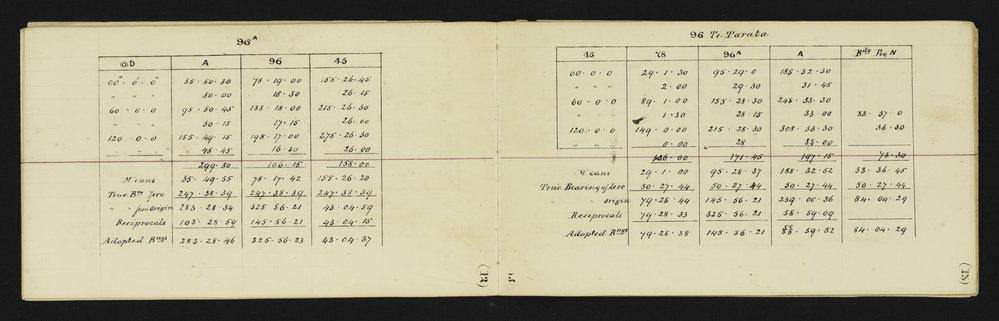 96ᴬ
⊙D A 96 45
00°. 0'. 0" 35. 50. 30 78. 19. 00 155. 26. 45
" " " 50. 00 18. 30 26. 15
60. 0. 0 95. 50. 45 138. 18. 00 215. 26. 30
" " " 50. 15 17. 15 26. 00
120. 0. 0 155. 49. 15 198. 17. 00 275. 26. 30
" " " 48. 45 16. 30 26. 00
299. 30 106. 15 158. 00
Means 35. 49. 55 78. 17. 42 155. 26. 20
True Bgs Zero 247. 38. 39 247. 38. 39 247. 38. 39
" from origin 283. 28. 34 325. 56. 21 43. 04. 59
Reciprocals 103. 28. 59 145. 56. 21 43. 04. 15
Adopted Bngs 283. 28. 46 325. 56. 23 43. 04. 37
(12)
96 Te Tarata
45 78 96ᴬ A Bdy Peg N
00. 0. 0 29. 1. 30 95. 29. 0 188. 32. 30
" " " 2. 00 29. 30 31. 45
60. 0. 0 89. 1. 00 155. 28. 30 248. 33. 30
" " " 1. 30 28. 15 33. 00 33. 37. 0
120. 0. 0 149. 0. 00 215. 28. 30 308. 33. 30 36. 30
" " " 0. 00 28 33. 00
136. 00 171. 45 197. 15 73. 30
Means 29. 1. 00 95. 28. 37 188. 32. 52 33. 36. 45
True Bearing of Zero 50. 27. 44 50. 27. 44 50. 27. 44 50. 27. 44
" origin 79. 28. 44 145. 56. 21 239. 00. 36 84. 04. 29
Reciprocals 79. 28. 33 325. 56. 21 58. 59. 09
Adopted Bngs 79. 28. 38 145. 56. 21 58. 59. 52 84. 04. 29
(13)